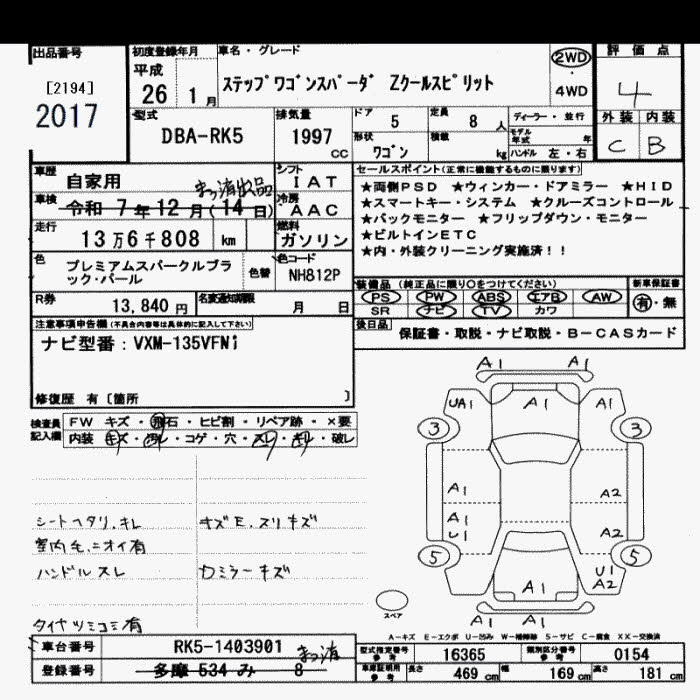 出品番号 初度登録年月 車名・グレード 評価点
[2194] 平成 ステップワゴンスパーダ Zクールスピリット 2WD 4
2017 26 1月 4WD
外装 内装
型式 排気量 ドア 5 定員 8人 ディーラー・並行 C B
DBA-RK5 1997 cc 形状 ワゴン 積載 kg モデル年式 年
ハンドル 左・右
車歴 自家用 シフト IAT セールスポイント(正常に機能するものに限ります)
車検 令和 7年12月(14日) 抹消出品 冷房 AAC
★両側PSD ★ウィンカー・ドアミラー ★HID
★スマートキー・システム ★クルーズコントロール
★バックモニター ★フリップダウン・モニター
★ビルトインETC
★内・外装クリーニング実施済!!
走行 13万6千808 km 燃料 ガソリン
色 プレミアムスパークルブラック・パール 色替 色コード NH812P
装備品(純正品に限り○をつけてください) 新車保証書
PS PW ABS エアB AW 有・無
SR ナビ TV カワ
R券 13,840円 名変通知期限 月 日
後日品 保証書・取説・ナビ取説・B-CASカード
注意事項申告欄(不具合内容等は具体的に記入して下さい)
ナビ型番:VXM-135VFNi
修復歴 有〔箇所 〕
検査員記入欄 FW キズ・飛石・ヒビ割・リペア跡・×要
内装 キズ・汚れ・コゲ・穴・スレ・キレ・破レ
シートヘタリ.キレ キズE.スリキズ
室内毛.ニオイ有
ハンドルスレ カミラーキズ
タイヤツミコミ有
A1 A1
UA1 A1 A1
3 3
A1 A2
A1
U1 A2
5 5
U1
A1 A2
A1 A1
スペア
A-キズ E-エクボ U-凹み W-補修跡 S-サビ C-腐食 XX-交換済
車台番号 RK5-1403901 型式指定番号 参考 16365 類別区分番号 参考 0154
登録番号 多摩 534 み 8 抹消 車庫証明用 参考 長さ 469cm 幅 169cm 高さ 181cm